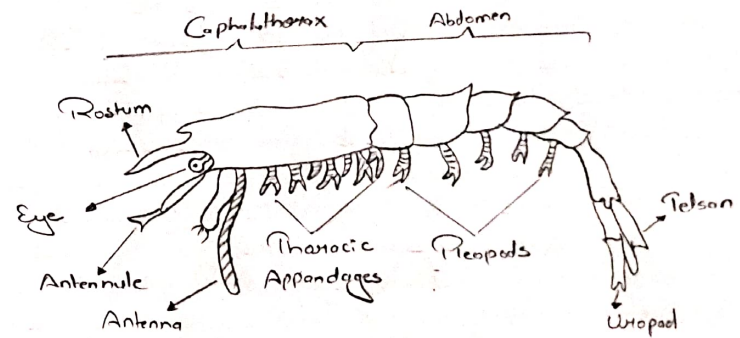 Cephalothorax
Abdomen
Rostum
Eye
Antennule
Antenna
Thoracic
Appandages
Pleopods
Telson
Uropod